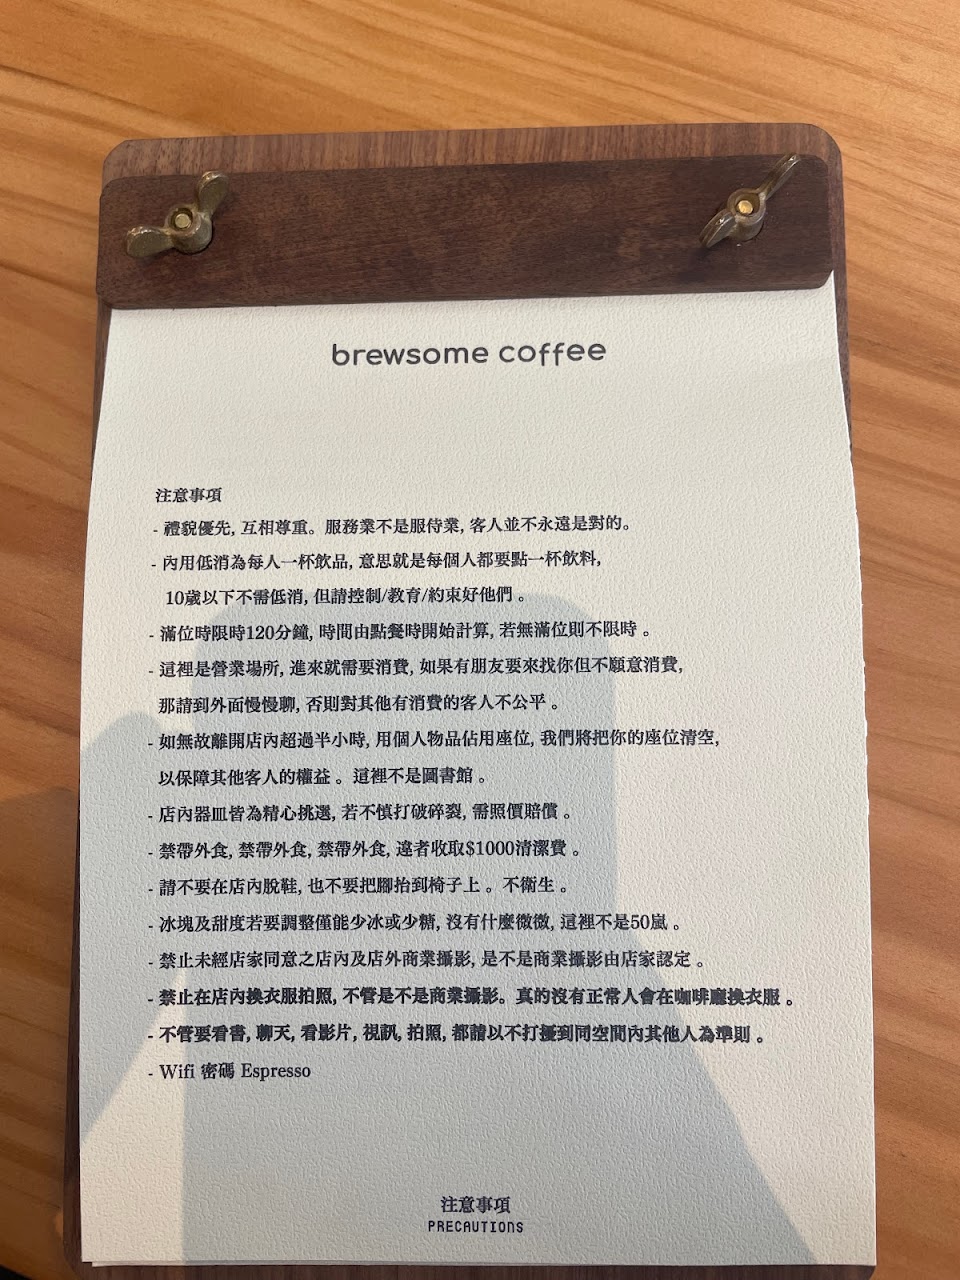 brewsome coffee
注意事項
- 禮貌優先, 互相尊重。服務業不是服侍業, 客人並不永遠是對的。
- 內用低消為每人一杯飲品, 意思就是每個人都要點一杯飲料,
10歲以下不需低消, 但請控制/教育/約束好他們。
- 滿位時限時120分鐘, 時間由點餐時開始計算, 若無滿位則不限時。
- 這裡是營業場所, 進來就需要消費, 如果有朋友要來找你但不願意消費,
那請到外面慢慢聊, 否則對其他有消費的客人不公平。
- 如無故離開店內超過半小時, 用個人物品佔用座位, 我們將把你的座位清空,
以保障其他客人的權益。這裡不是圖書館。
- 店內器皿皆為精心挑選, 若不慎打破碎裂, 需照價賠償。
- 禁帶外食, 禁帶外食, 禁帶外食, 違者收取$1000清潔費。
- 請不要在店內脫鞋, 也不要把腳抬到椅子上。不衛生。
- 冰塊及甜度若要調整僅能少冰或少糖, 沒有什麼微微, 這裡不是50嵐。
- 禁止未經店家同意之店內及店外商業攝影, 是不是商業攝影由店家認定。
- 禁止在店內換衣服拍照, 不管是不是商業攝影。真的沒有正常人會在咖啡廳換衣服。
- 不管要看書, 聊天, 看影片, 視訊, 拍照, 都請以不打擾到同空間內其他人為準則。
- Wifi 密碼 Espresso
注意事項
PRECAUTIONS